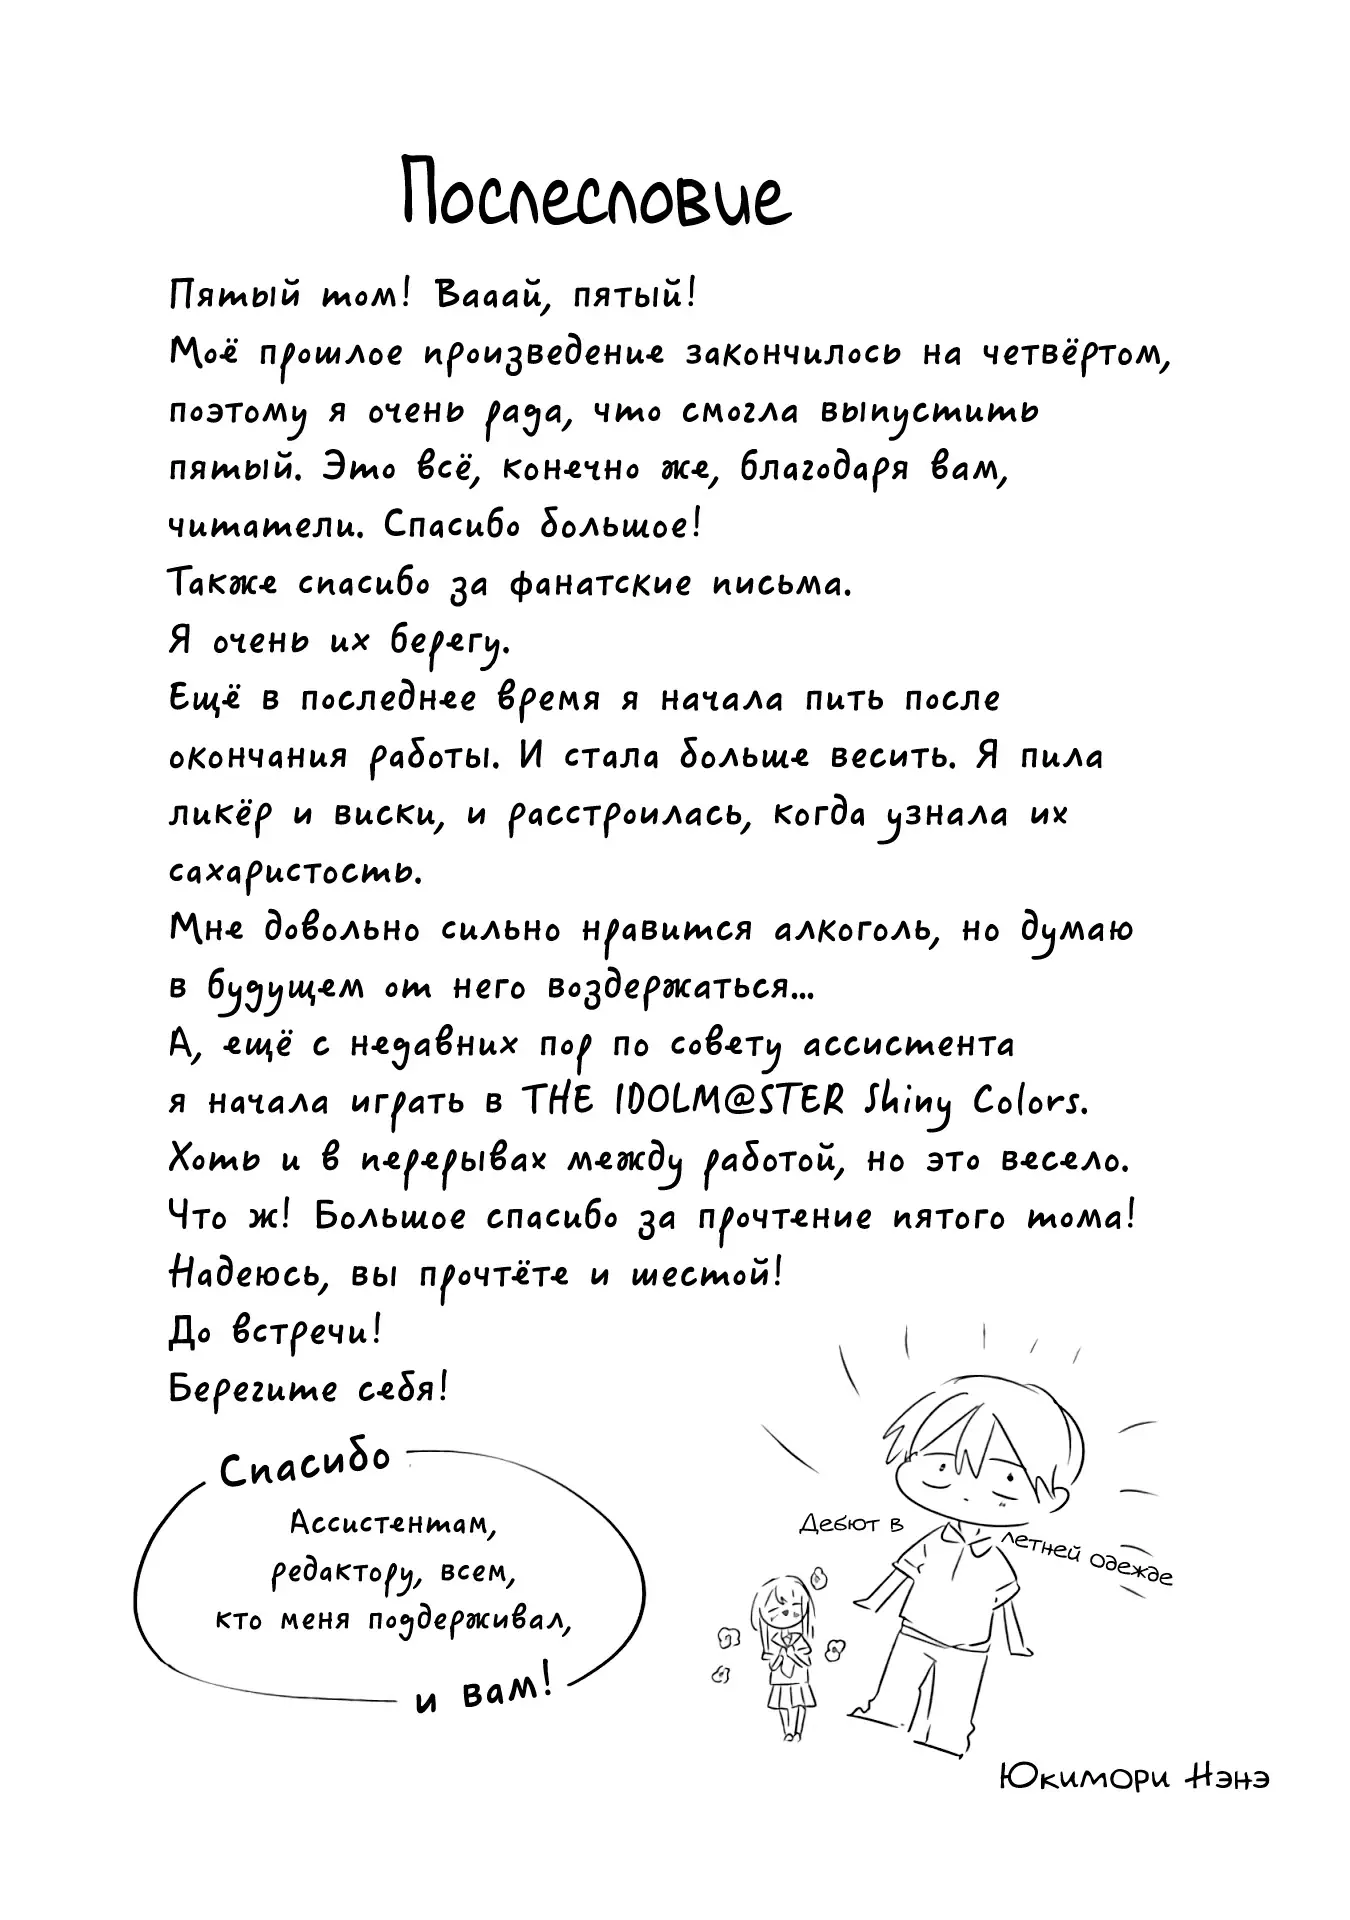 Послесловие
Пятый том! Вааай, пятый!
Моё прошлое произведение закончилось на четвёртом,
поэтому я очень рада, что смогла выпустить
пятый. Это всё, конечно же, благодаря вам,
читатели. Спасибо большое!
Также спасибо за фанатские письма.
Я очень их берегу.
Ещё в последнее время я начала пить после
окончания работы. И стала больше весить. Я пила
ликёр и виски, и расстроилась, когда узнала их
сахаристость.
Мне довольно сильно нравится алкоголь, но думаю
в будущем от него воздержаться...
А, ещё с недавних пор по совету ассистента
я начала играть в THE IDOLM@STER Shiny Colors.
Хоть и в перерывах между работой, но это весело.
Что ж! Большое спасибо за прочтение пятого тома!
Надеюсь, вы прочтёте и шестой!
До встречи!
Берегите себя!
Спасибо
Ассистентам,
редактору, всем,
кто меня поддерживал,
и вам!
Дебют в летней одежде
Юкимори Нэнэ